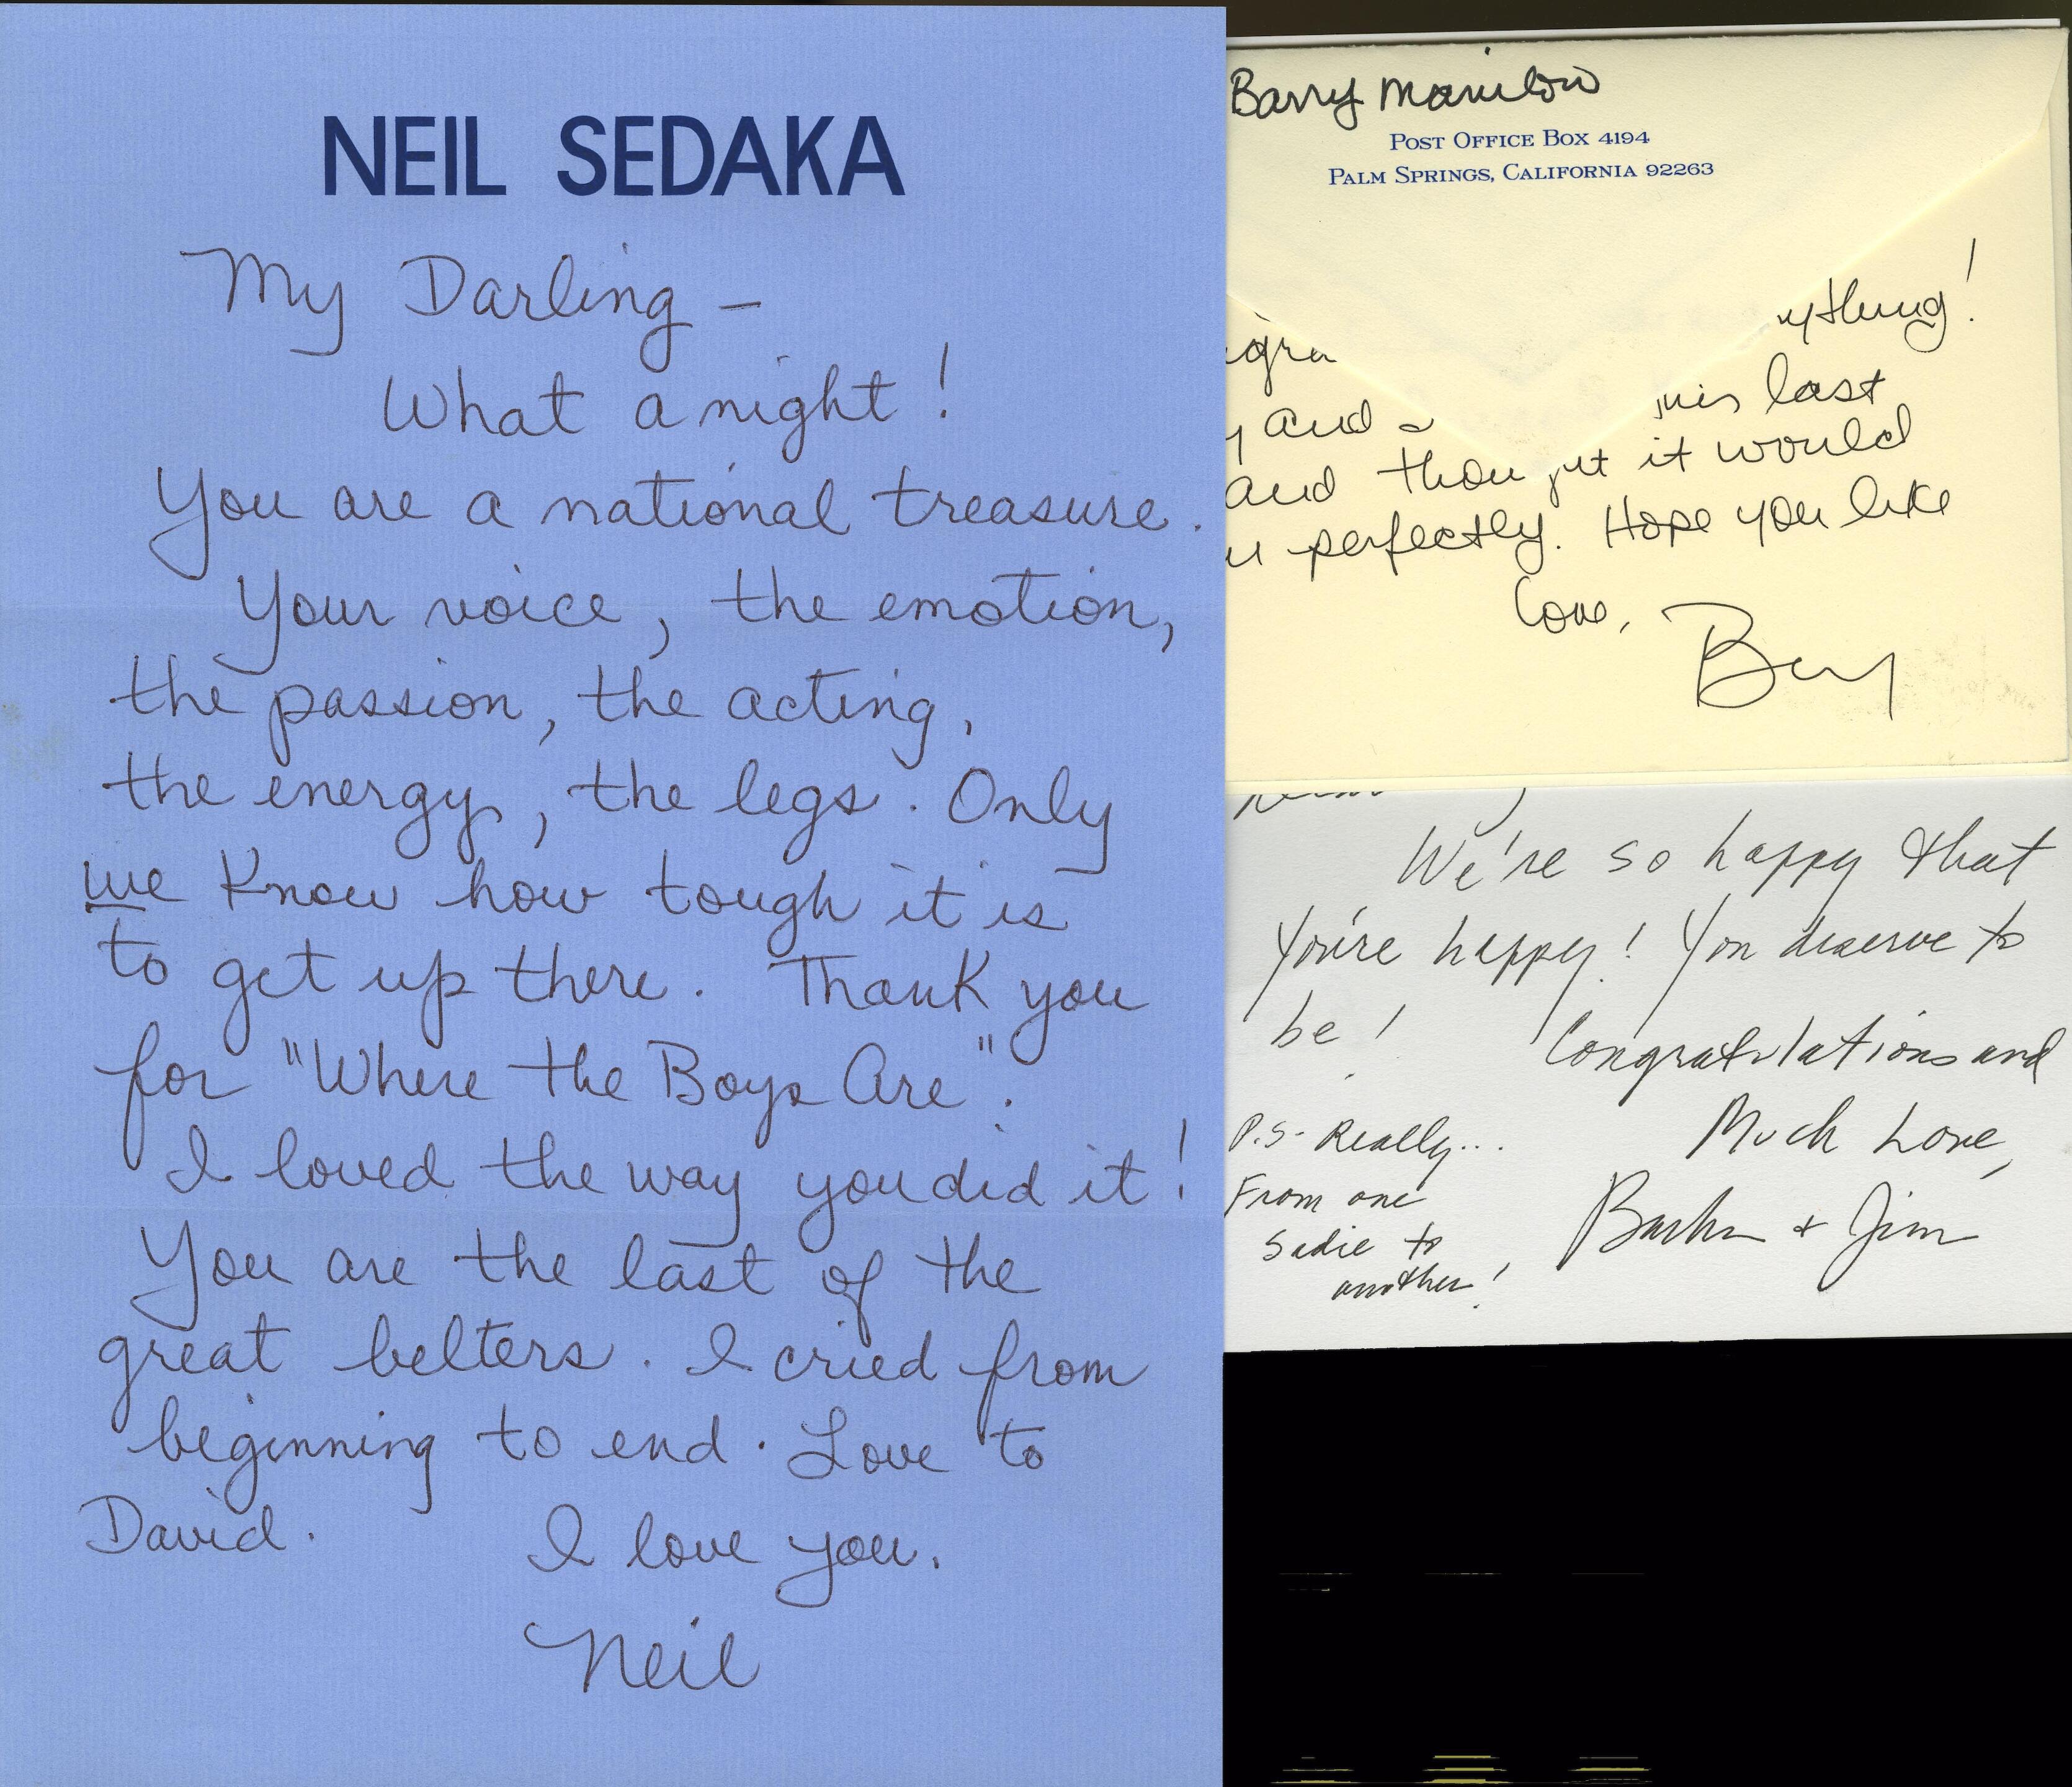 NEIL SEDAKA
My Darling –
What a night!
You are a national treasure.
Your voice, the emotion,
the passion, the acting,
the energy, the legs. Only
we know how tough it is
to get up there. Thank you
for "Where the Boys Are".
I loved the way you did it!
You are the last of the
great belters. I cried from
beginning to end. Love to
David. I love you.
Neil
Barry Manilow
POST OFFICE BOX 4194
PALM SPRINGS, CALIFORNIA 92263
ything!
and
last
and it would
perfectly. Hope you like
Love,
Barry
We're so happy that
You're happy! You deserve to
be! Congratulations and
Much Love,
Barbra + Jim
P.S. Really...
From one
Sadie to
another!